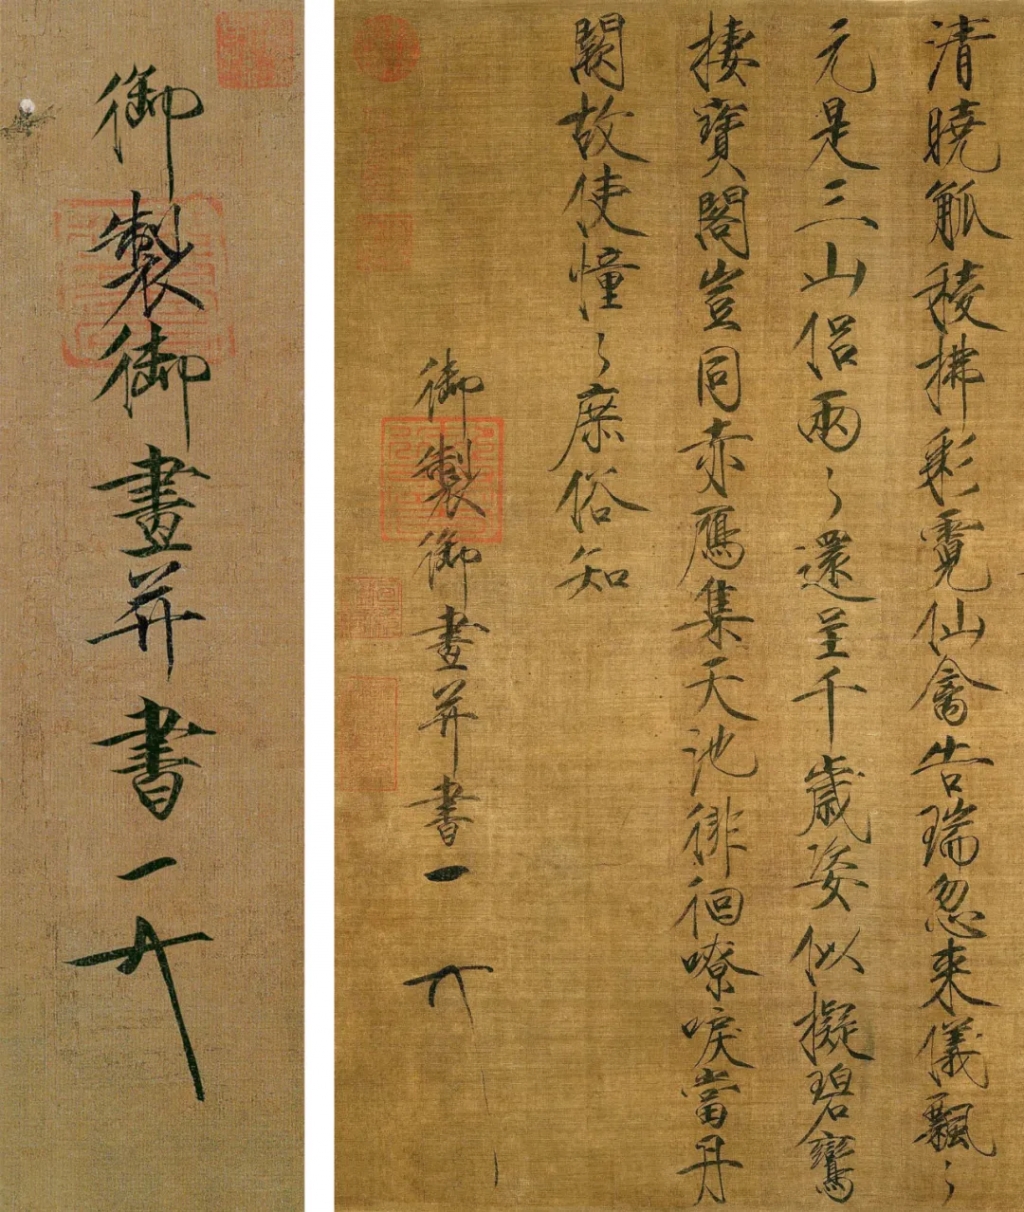 清曉觚稜拂彩霓仙禽告瑞忽来儀飄〻
元是三山侶兩〻還呈千歲姿似擬碧鸞
棲寶閣豈同赤鴈集天池徘徊嘹唳當丹
闕故使憧〻庶俗知
御製御畫并書一
御製御畫并書一